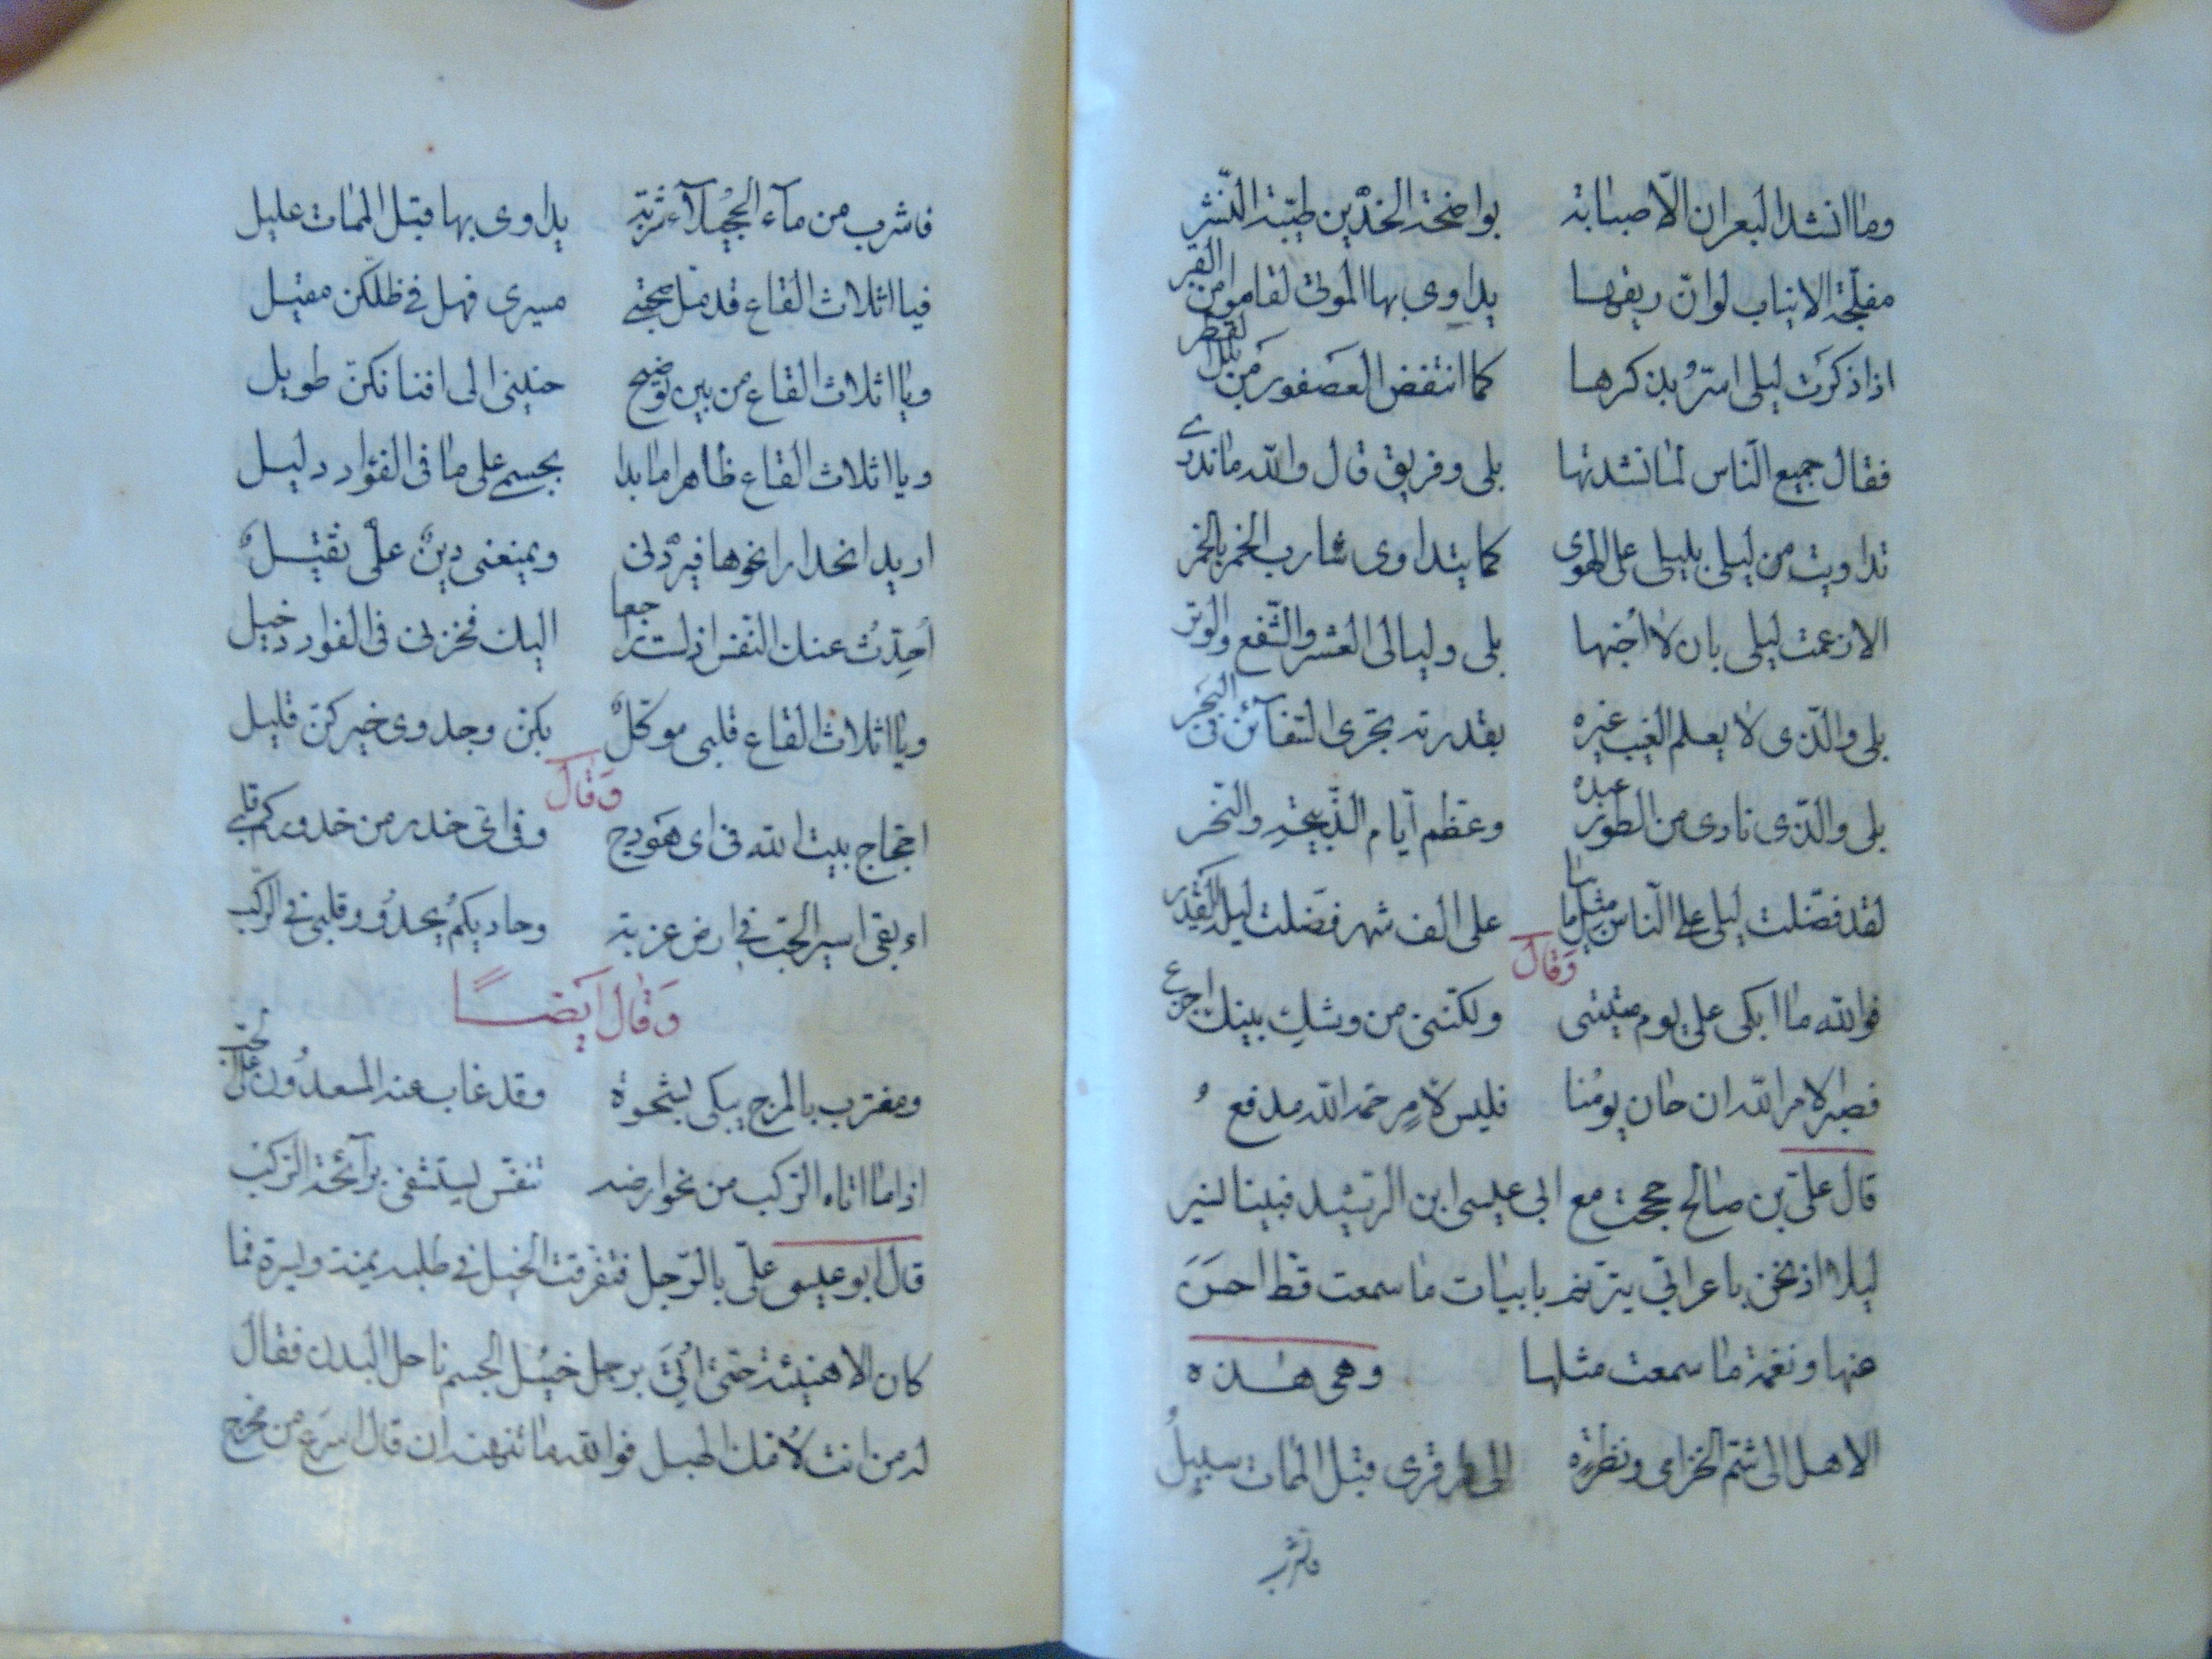 وما انشد البعران الّا صبابة بواضحة الخدّين طيّبة النّشر
مفلّجة الانياب لو انّ ريقها يداوى بها الموتى لقاموا من القبر
اذا ذكرت ليلى اسرّ بذكرها كما انتفض العصفور من بلل القطر
فقال جميع النّاس لما نشدتها بلى وفريق قال والله ما ندرى
تداويت من ليلى بليلى على الهوى كما يتداوى شارب الخمر بالخمر
الا زعمت ليلى بان لا احُبّها بلى وليالى العشر والشّفع والوتر
بلى والّذى لا يعلم الغيب غيره بقدرته تجرى السّفآئن فى البحر
بلى والّذى نادى من الطور عبده وعظّم ايّام الذّبيحة والنّحر
لقد فضّلت ليلى على النّاس مثل ما على الف شهر فضّلت ليلة القدر
وَقال
فوالله ما ابكى على يوم ميتتى ولكنّنى من وشكِ بينك اجزع
فصبرا لامر الله ان حان يومُنا فليس لامرٍ حمّه الله مدفعُ
قال علىّ بن صالح حججت مع ابى عيسى ابن الرّشيد فبينا نسير
ليلا اذ نحن باعرابّي يترنّم بابيات ما سمعت قطّ احسَنَ
منها ونغمة ما سمعت مثلها وهى هذه
الا هل الى شمّ الخزامى ونظرة الى قرقرى قبل الممات سبيلُ
فاشرب
فاشرب من مآء الحجيلآء شربة يداوى بها قبل الممات عليل
فيا اثلاث القاع قد ملّ صحبتى مسيرى فهل فى ظلّكن مقيل
ويا اثلاث القاع من بين توضح حنينى الى افنانكنّ طويل
ويا اثلاث القاع ظاهر ما بدا بجسمى على ما فى الفؤاد دليل
اريد انحدارا نحوها فيردّنى ويمنعنى دينٌ علّى ثقيلٌ
اُحدّثُ عنك النّفس ان لست راجعا اليك فحزنى فى الفواد دخيل
ويا اثلاث القاع قلبى موكّلٌ بكنّ وجدوى خيركنّ قليل
وَقال
احجّاج بيت الله فى اى هَودج وفى اىّ خدر من خدوركم قلبى
اءبقى اسير الحبّ فى ارض غربة وحاديكمُ يحدُو وقلبى فى الرّكب
وَقال اَيضًا
ومغترب بالمرج يبكى لشجوه وقد غاب عنه المسعدُون على الحبّ
اذا ما اتاه الرّكب من نحو ارضه تنفّس يستشفى برآئحة الرّكب
قال ابو عيسى علىّ بالرّجل فتفرّقت الخيل فى طلبه يمنة ويسرة فما
كان الا هنيئة حتّى اُتِىَ برجل ضئيل الجسم ناحل البدن فقال
له من انت لا امّ لك فوالله ما تنهنه ان قال اسرع من مخرج